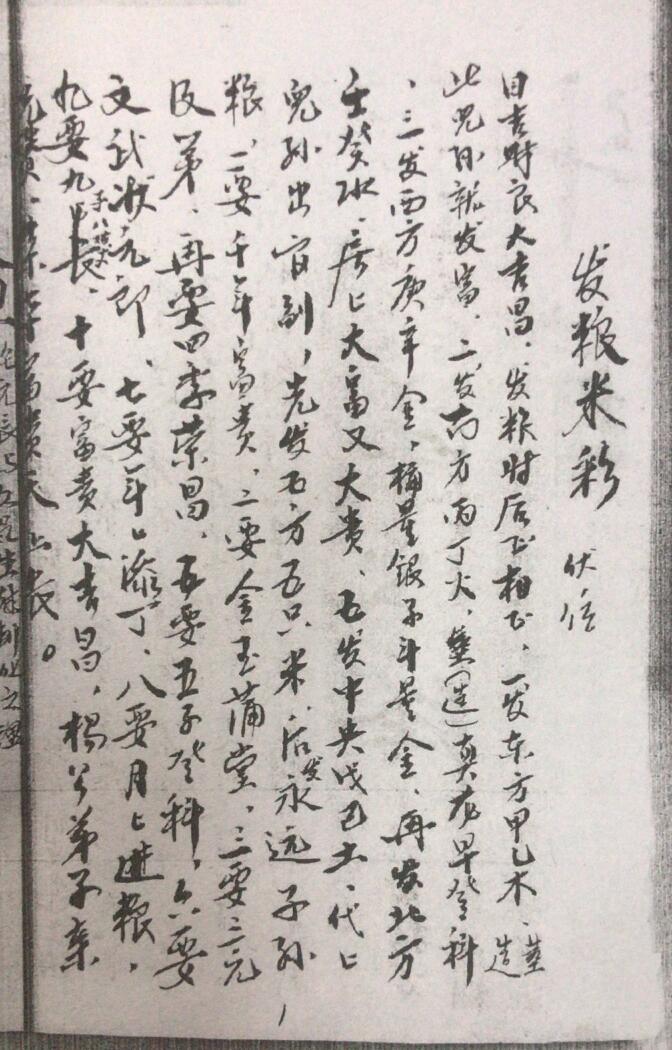 发粮米彩 伏位
日吉时良大吉昌、发粮时后正相正、一发东方甲乙木、葬造
此儿孙就发富、二发南方丙丁火、葬(造)真龙早登科
、三发西方庚辛金、桶量银子斗量金、再发北方
壬癸水、房〻大富又大贵、五发中央戊己土、代〻
儿孙出官副、先发五方五只米、后发永远子孙
粮、一要千年富贵、二要金玉蒲堂、三要三元
及第、再要四季荣昌、五要五子登科、六要
文武状元郎、七要年〻添丁、八要月〻进粮、
九要九子八长、十要富贵大吉昌、杨公弟子来